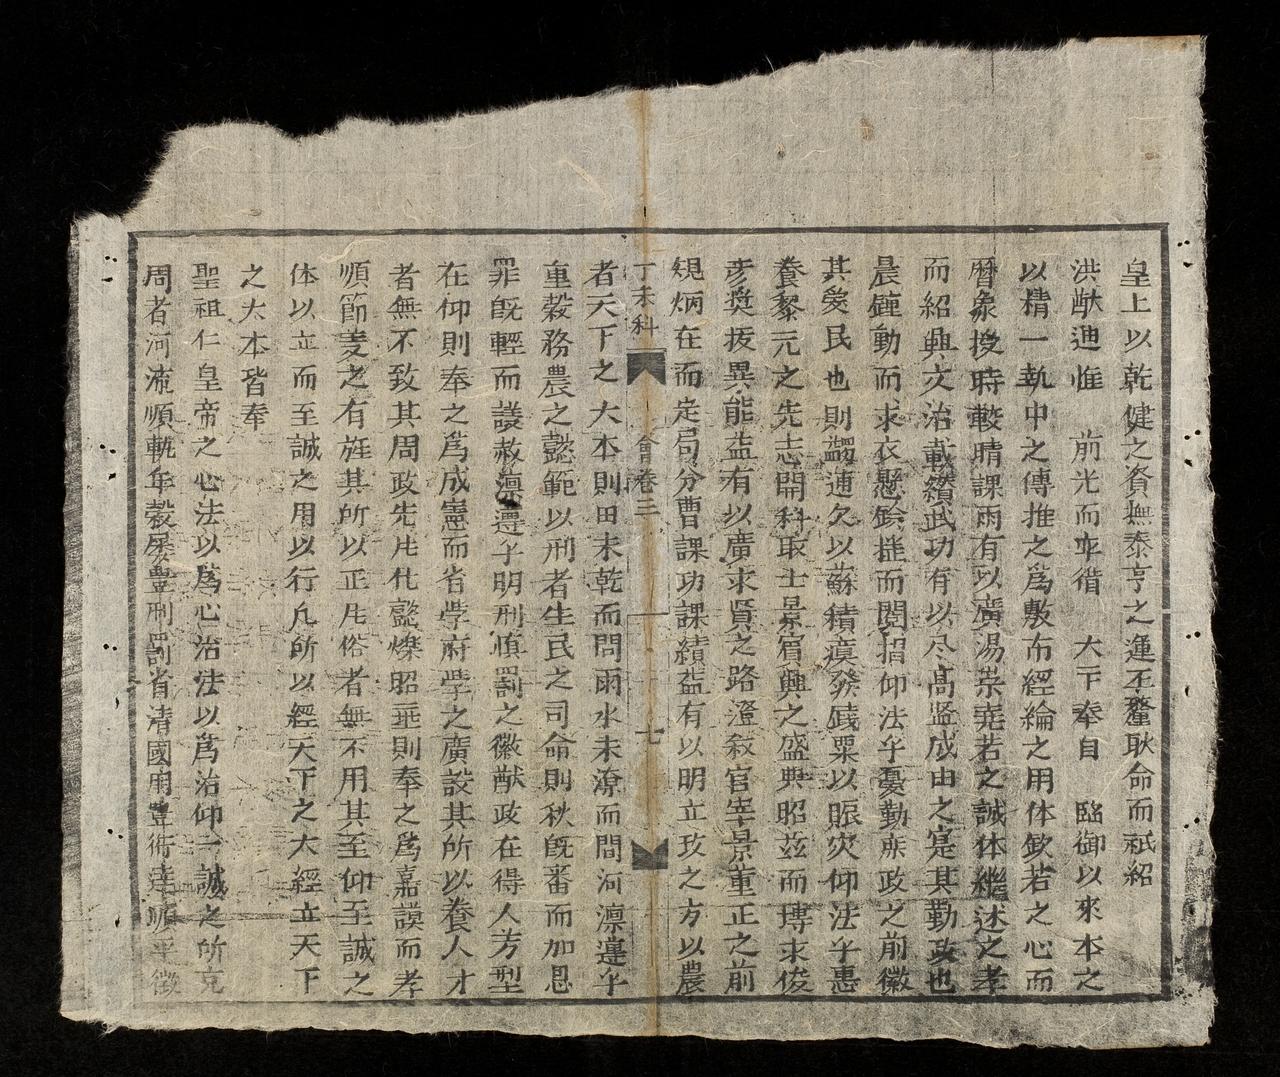 皇上以乾健之資撫泰亨之運丕釐耿命而祗紹
洪猷迪惟 前光而率循 大下奉自 臨御以來本之
以精一執中之傳推之爲敷布經綸之用体欽若之心而
曆象授時較晴課雨有以廣湯柴堯若之誠体繼述之孝
而紹興文治載纘武功有以尽高竖成由之寔其勤政也
晨鐘動而求衣懸餘摧而閱摺仰法乎憂勤庶政之前徽
其愛民也則蠲逋欠以蘇積瘼發錢粟以賑灾仰法乎惠
養黎元之先志開科取士景賓興之盛典昭玆而摶求俊
彦獎拔異能益有以廣求賢之路澄敘官宰景董正之前
規炳在而定局分曹課功課績益有以明立政之方以農
丁未科 會卷三 七
者天下之大本則田未乾而問雨水未潦而問河凛遵乎
重穀務農之懿範以刑者生民之司命則秋旣審而加恩
罪旣輕而議赦凛遵乎明刑愼罰之徽猷政在得人芳型
在仰則奉之爲成憲而省學府學之廣設其所以養人才
者無不致其周政先化懿爍昭垂則奉之爲嘉謨而孝
順節義之有旌其所以正俗者無不用其至仰至誠之
体以立而至誠之用以行凡所以經天下之大經立天下
之大本皆奉
聖祖仁皇帝之心法以爲心治法以爲治仰一誠之所克
周者河流順軌年穀屡豊刑罰省清國用豊術達順平徵